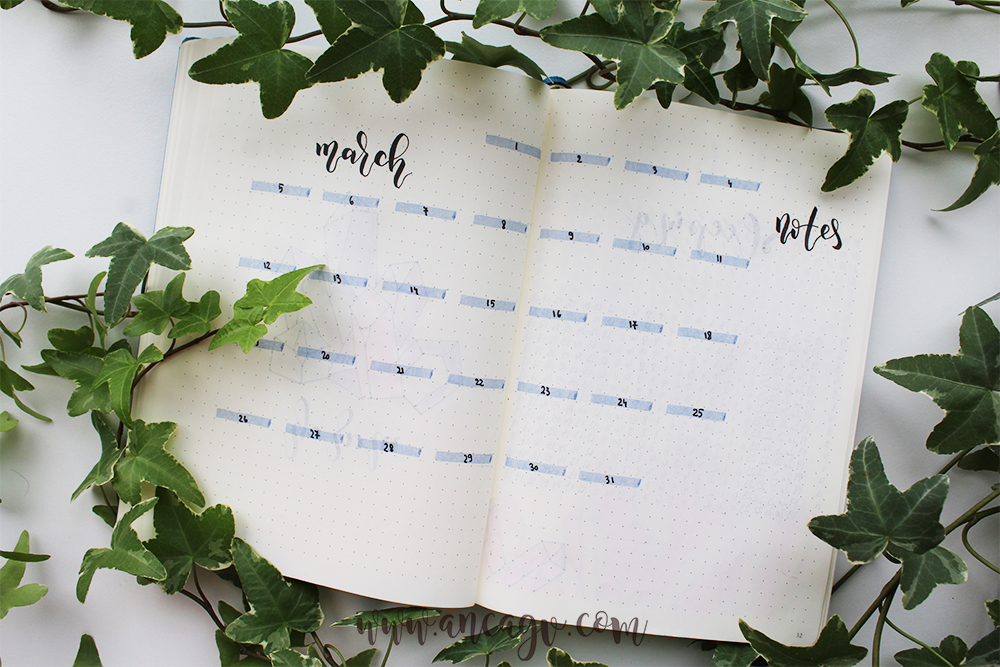 march
1 2 3 4
notes
5 6 7 8 9 10 11
12 13 14 15 16 17 18
20 21 22 23 24 25
26 27 28 29 30 31
32
www.ancagv.com